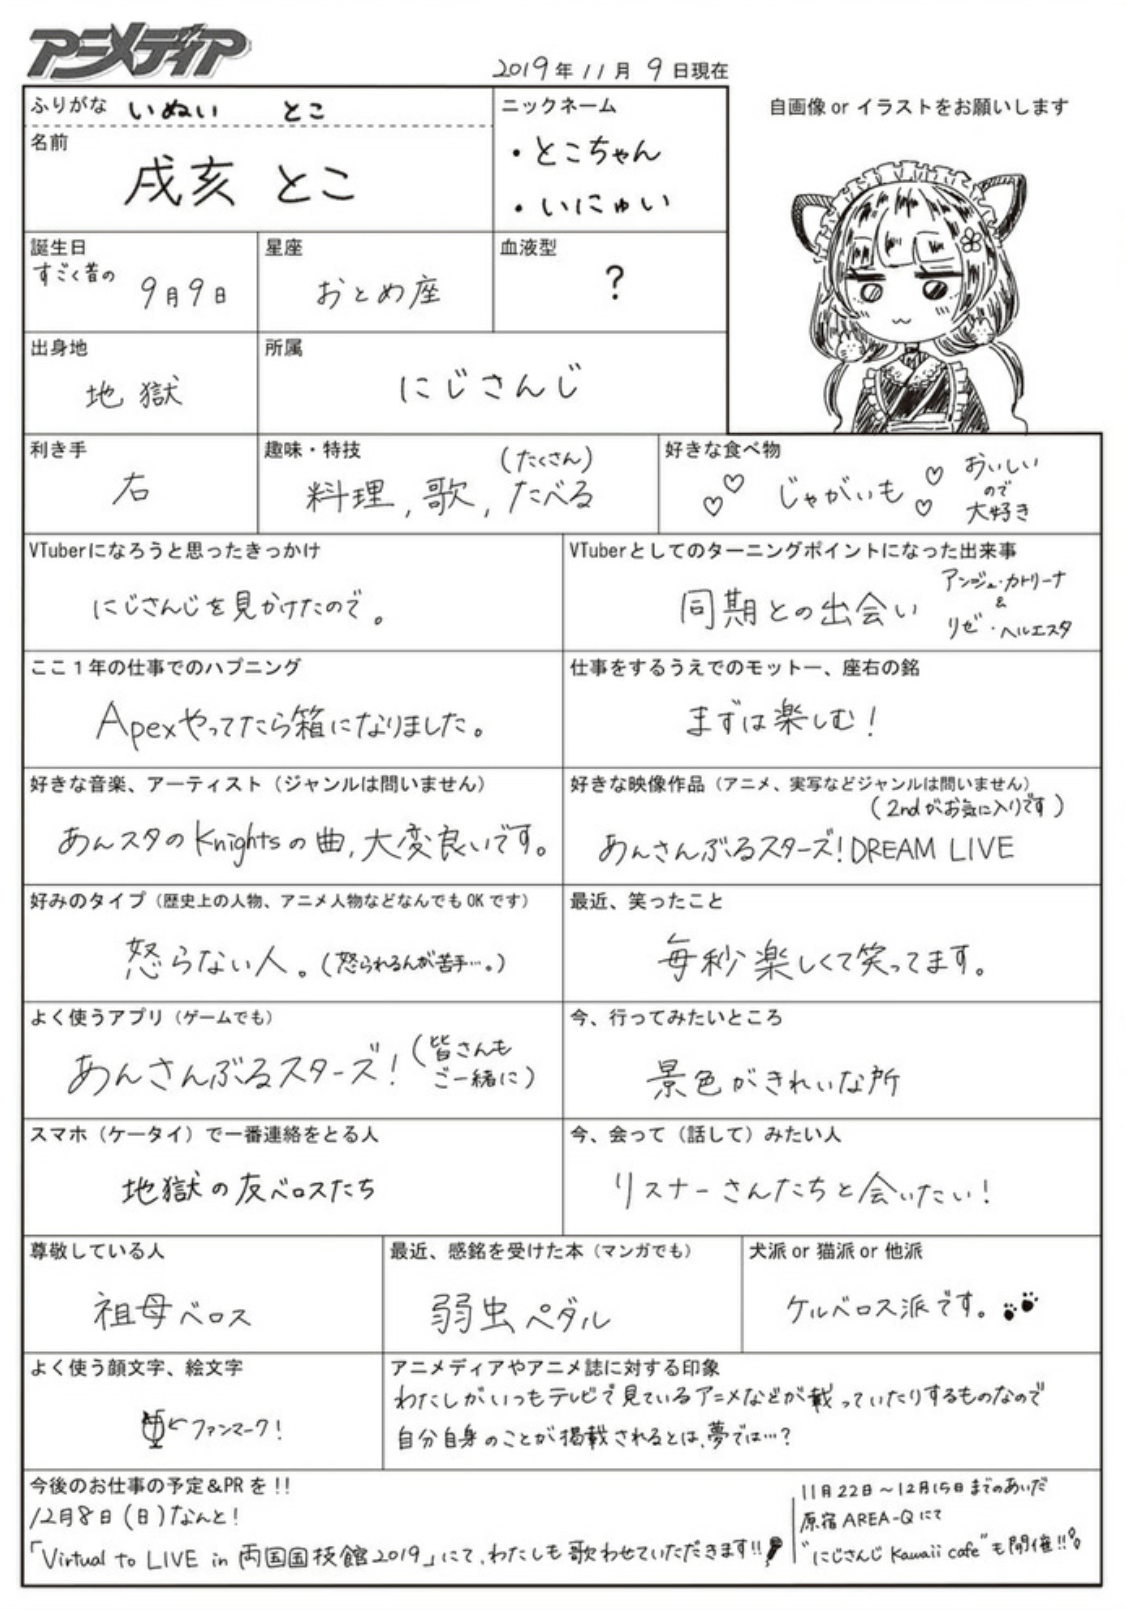 アニメディア
2019年11月9日現在
ふりがな いぬい とこ
名前
戌亥 とこ
ニックネーム
・とこちゃん
・いにゅい
自画像 or イラストをお願いします
誕生日
すごく昔の 9月9日
星座
おとめ座
血液型
?
出身地
地獄
所属
にじさんじ
利き手
右
趣味・特技
(たくさん)
料理,歌,たべる
好きな食べ物
♡♡ じゃがいも ♡♡
おいしい
ので
大好き
VTuberになろうと思ったきっかけ
にじさんじを見かけたので。
VTuberとしてのターニングポイントになった出来事
同期との出会い
アンジュ・カトリーナ
&
リゼ・ヘルエスタ
ここ1年の仕事でのハプニング
Apexやってたら箱になりました。
仕事をするうえでのモットー、座右の銘
まずは楽しむ!
好きな音楽、アーティスト(ジャンルは問いません)
あんスタのKnightsの曲,大変良いです。
好きな映像作品(アニメ、実写などジャンルは問いません)
(2ndがお気に入りです)
あんさんぶるスターズ!DREAM LIVE
好みのタイプ(歴史上の人物、アニメ人物などなんでもOKです)
怒らない人。(怒られるんが苦手…。)
最近、笑ったこと
毎秒楽しくて笑ってます。
よく使うアプリ(ゲームでも)
あんさんぶるスターズ!
(皆さんも
ご一緒に)
今、行ってみたいところ
景色がきれいな所
スマホ(ケータイ)で一番連絡をとる人
地獄の友ベロスたち
今、会って(話して)みたい人
リスナーさんたちと会いたい!
尊敬している人
祖母ベロス
最近、感銘を受けた本(マンガでも)
弱虫ペダル
犬派 or 猫派 or 他派
ケルベロス派です。
よく使う顔文字、絵文字
←ファンマーク!
アニメディアやアニメ誌に対する印象
わたしがいつもテレビで見ているアニメなどが載っていたりするものなので
自分自身のことが掲載されるとは、夢では…?
今後のお仕事の予定&PRを!!
12月8日(日)なんと!
「Virtual to LIVE in 両国国技館2019」にて、わたしも歌わせていただきます!!
11月22日~12月15日までのあいだ
原宿AREA-Qにて
"にじさんじ Kawaii cafe"も開催!!